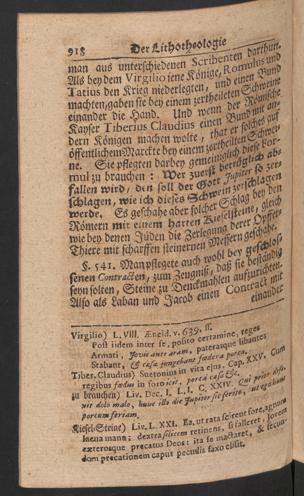 918 Der Lithotheologie
man aus unterschiedenen Scribenten darthun.
Als bey dem Virgilio jene Könige, Romulus und
Tatius den Krieg niederlegten, und einen Bund
machten, gaben sie bey einem zertheilten Schweine
einander die Hand. Und wenn der Römische
Kayser Tiberius Claudius einen Bund mit an-
dern Königen machen wolte, that er solches auf
öffentlichem Marckte bey einem zertheilten Schwei-
ne. Sie pflegten darbey gemeiniglich diese For-
mul zu brauchen: Wer zuerst betrüglich ab-
fallen wird, den soll der Gott Jupiter so zer-
schlagen, wie ich dieses Schwein zerschlagen
werde. Es geschahe aber solcher Schlag bey den
Römern mit einem harten Kieselsteine, gleich
wie bey denen Jüden die Zerlegung derer Opffer-
Thiere mit scharffen steinernen Messern geschahe.
§. 541. Man pflegete auch wohl bey geschlos-
senen Contracten, zum Zeugniß, daß sie beständig
seyn solten, Steine zu Denckmahlen aufzurichten.
Also als Laban und Jacob einen Contract mit
einander
Virgilio) L. VIII. Æneid. v. 639. ss.
Post iidem inter se, posito certamine, reges
Armati, Jovis ante aram, paterasque tenentes
Stabant, & cæsa jungebant fœdera porca.
Tiber. Claudius) Suetonius in vita ejus. Cap. XXV. Cum
regibus fœdus in foro icit, porca cæsa &c.
zu brauchen) Liv. Dec. I. L. I. C. XXIV. Qui prior defe-
xit dolo malo, hunc illo die Jupiter sic ferito, ut ego hunc
porcum feriam.
Kiesel-Steine) Liv. L. XXI. Ea ut rata scirent fore, agnum
læva manu; dextra silicem retinens, si falleret, Jovem
ceterosque precatus Deos: ita se mactaret, & secun-
dum precationem caput pecudis saxo elisit.